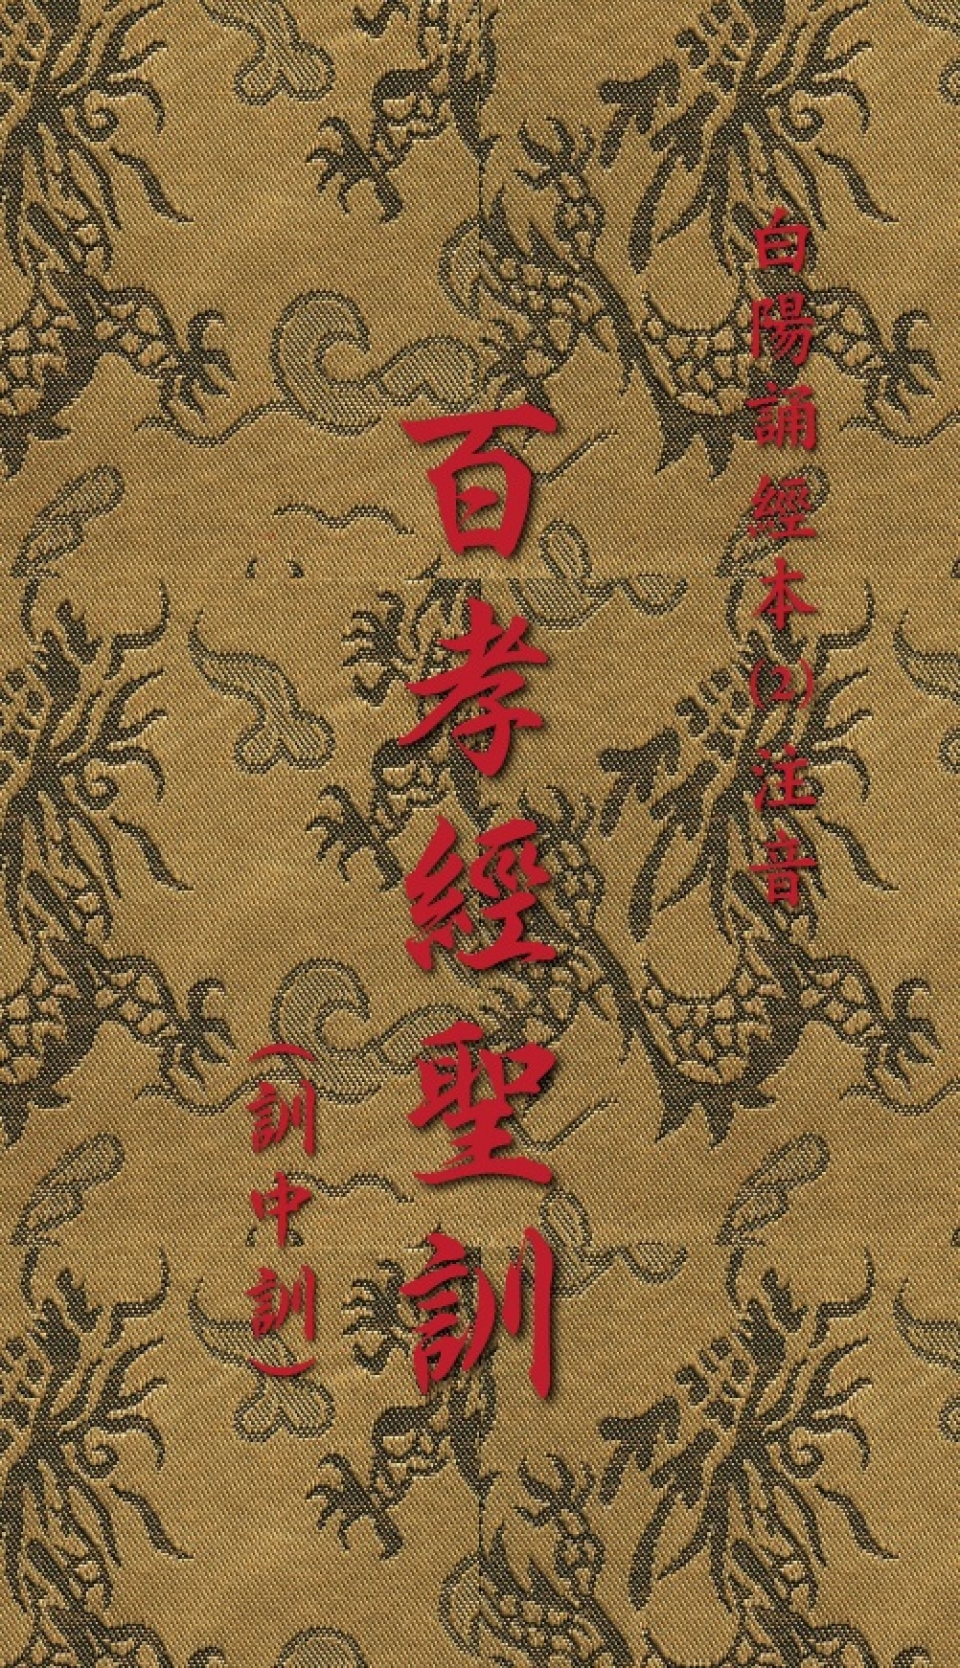 白陽誦經本(2)注音
百孝經聖訓
(訓中訓)